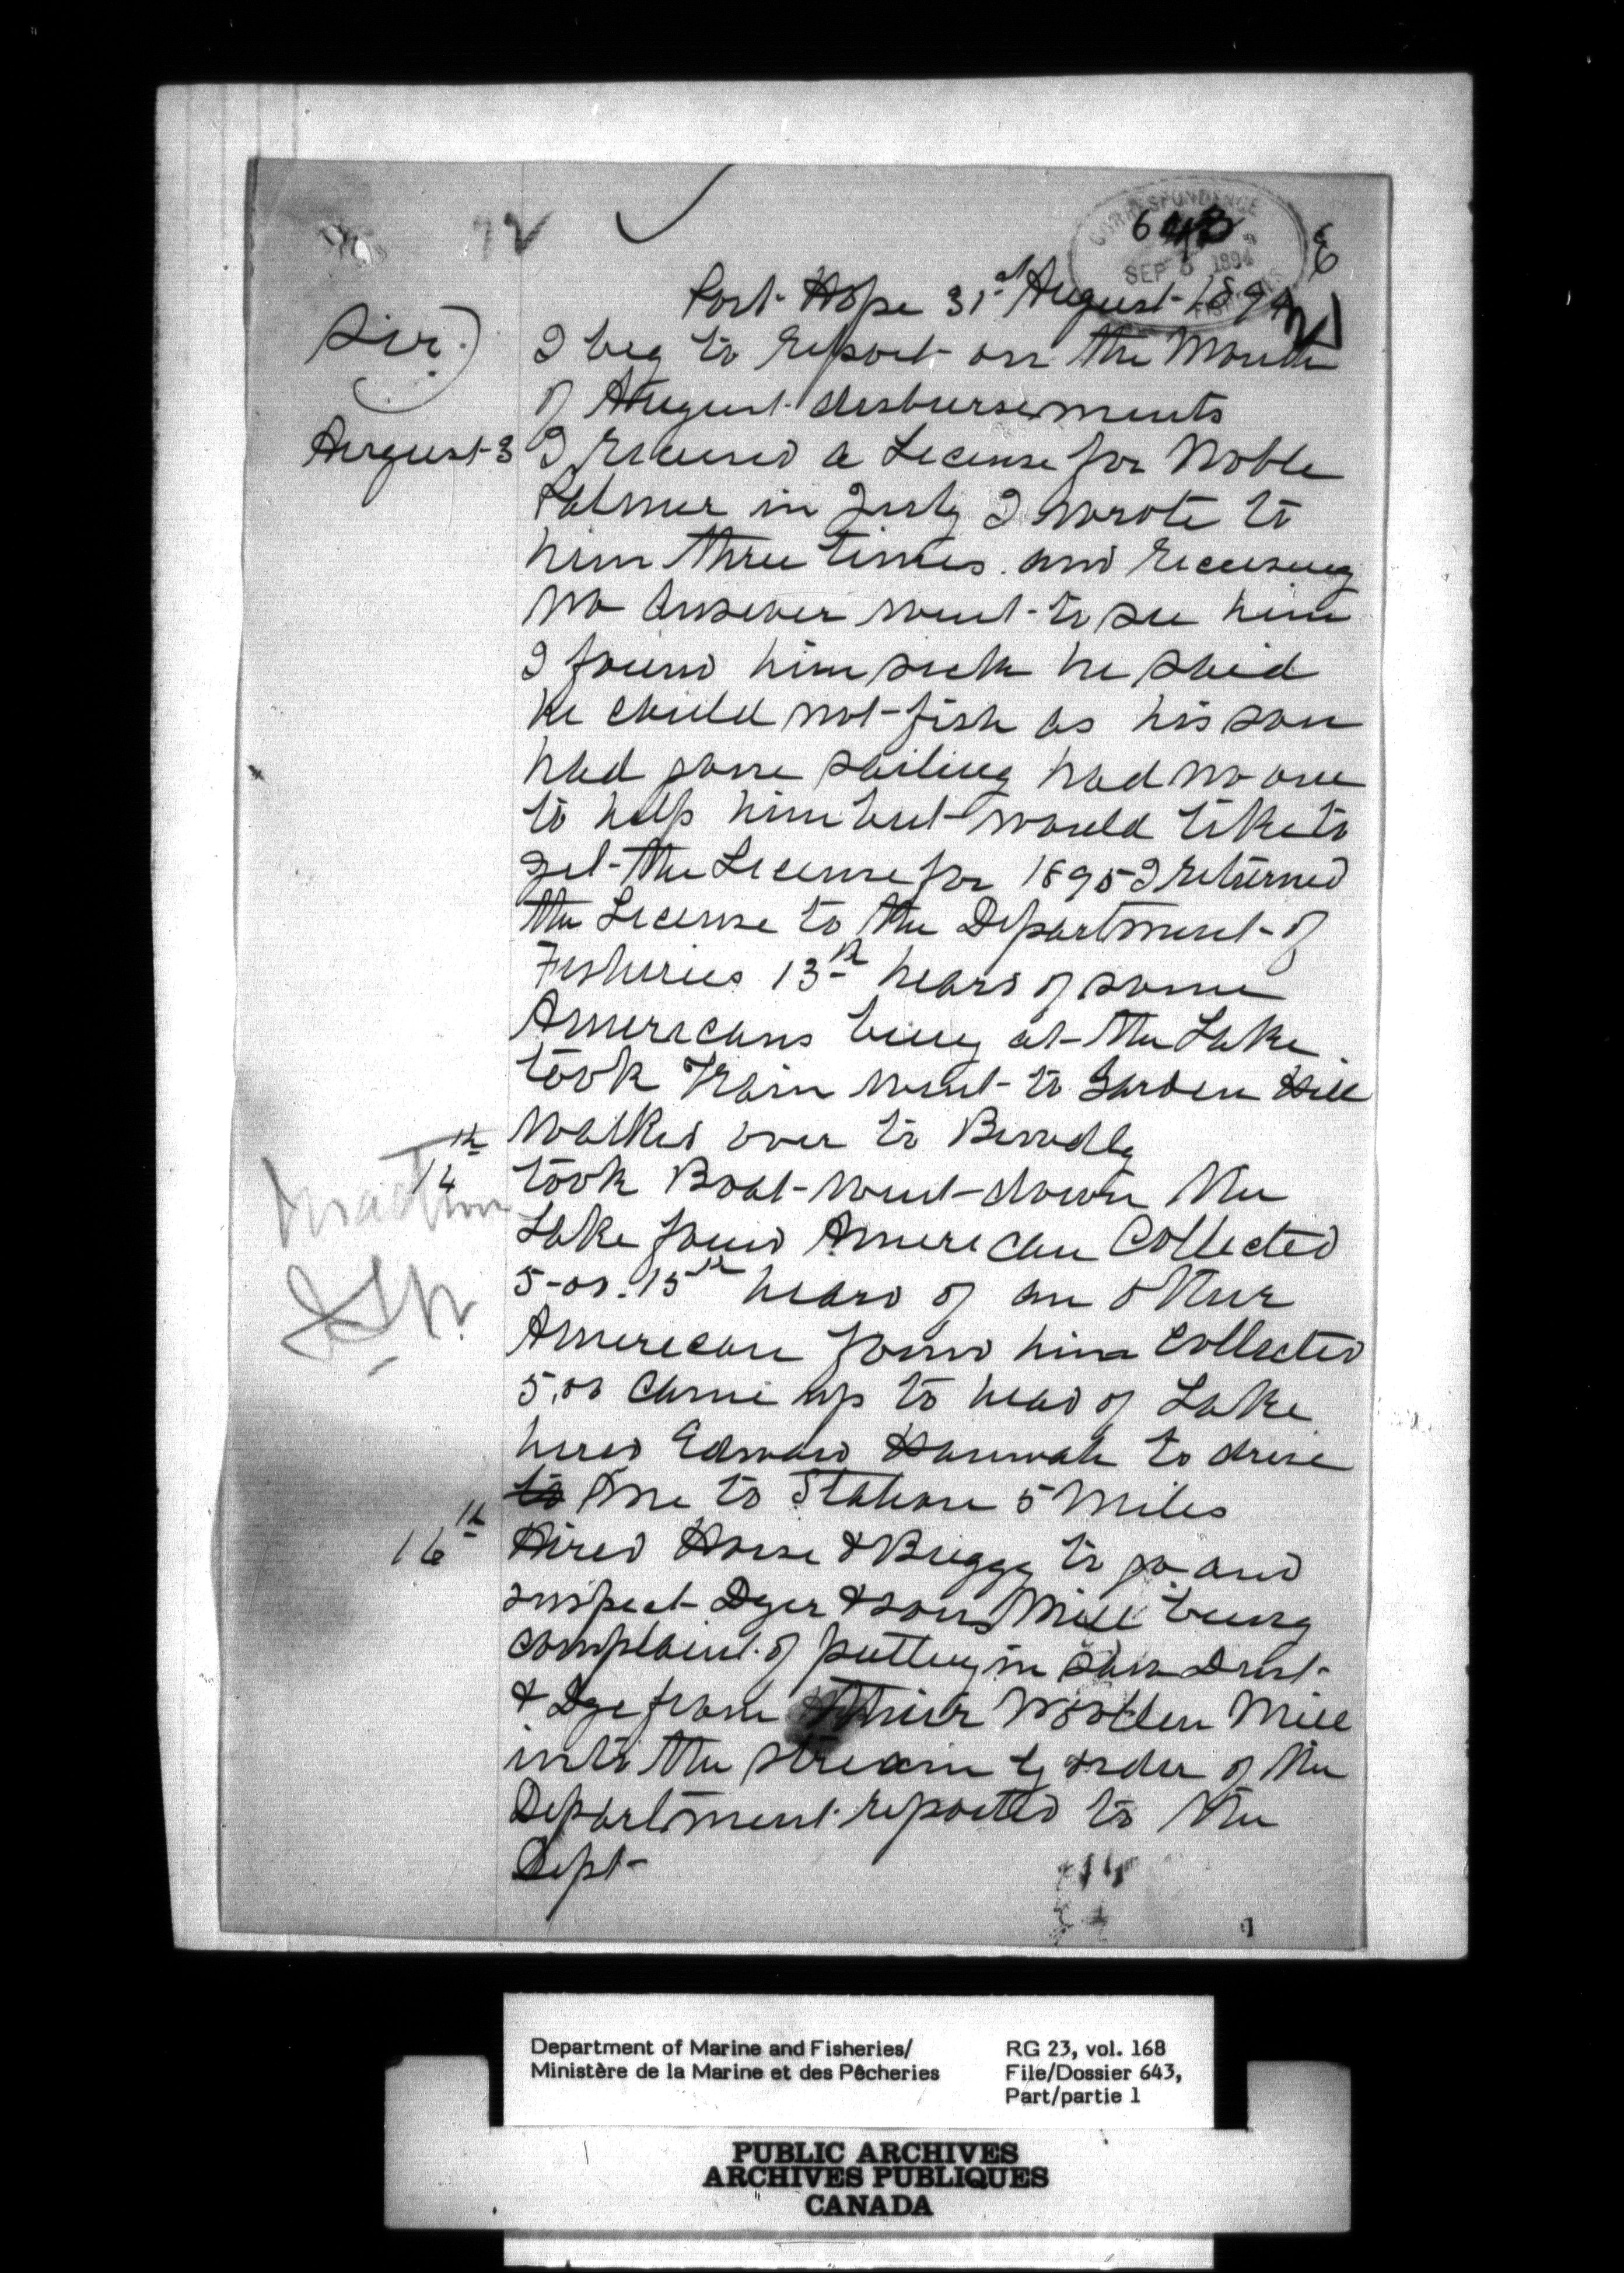 72
CORRESPONDENCE
643
SEP 5 1894
FISHERIES
Port Hope 31st August 1894
Sir
I beg to report on the Month
of August disbursements
August 3 I received a License for Noble
Palmer in July I wrote to
him three times and receiving
no answer went to see him
I found him sick he said
he could not fish as his son
had gone sailing had no one
to help him but would like to
get the License for 1895 I returned
the License to the Department of
Fisheries 13th heard of some
Americans being at the Lake
took Train went to Garden Hill
walked over to Bewdly
14th took Boat went down the
Lake found American Collected
5-00. 15th heard of an other
American found him Collected
5.00 Came up to head of Lake
hired Edward Hannah to drive
to me to Station 5 Miles
16th Hired Horse & Buggy to go and
inspect Dyer & sons Mill being
complaint of putting in Saw Dust
& Dye from their Woollen Mill
into the stream by order of the
Department reported to the
Dept
Department of Marine and Fisheries/
Ministère de la Marine et des Pêcheries
RG 23, vol. 168
File/Dossier 643,
Part/partie 1
PUBLIC ARCHIVES
ARCHIVES PUBLIQUES
CANADA